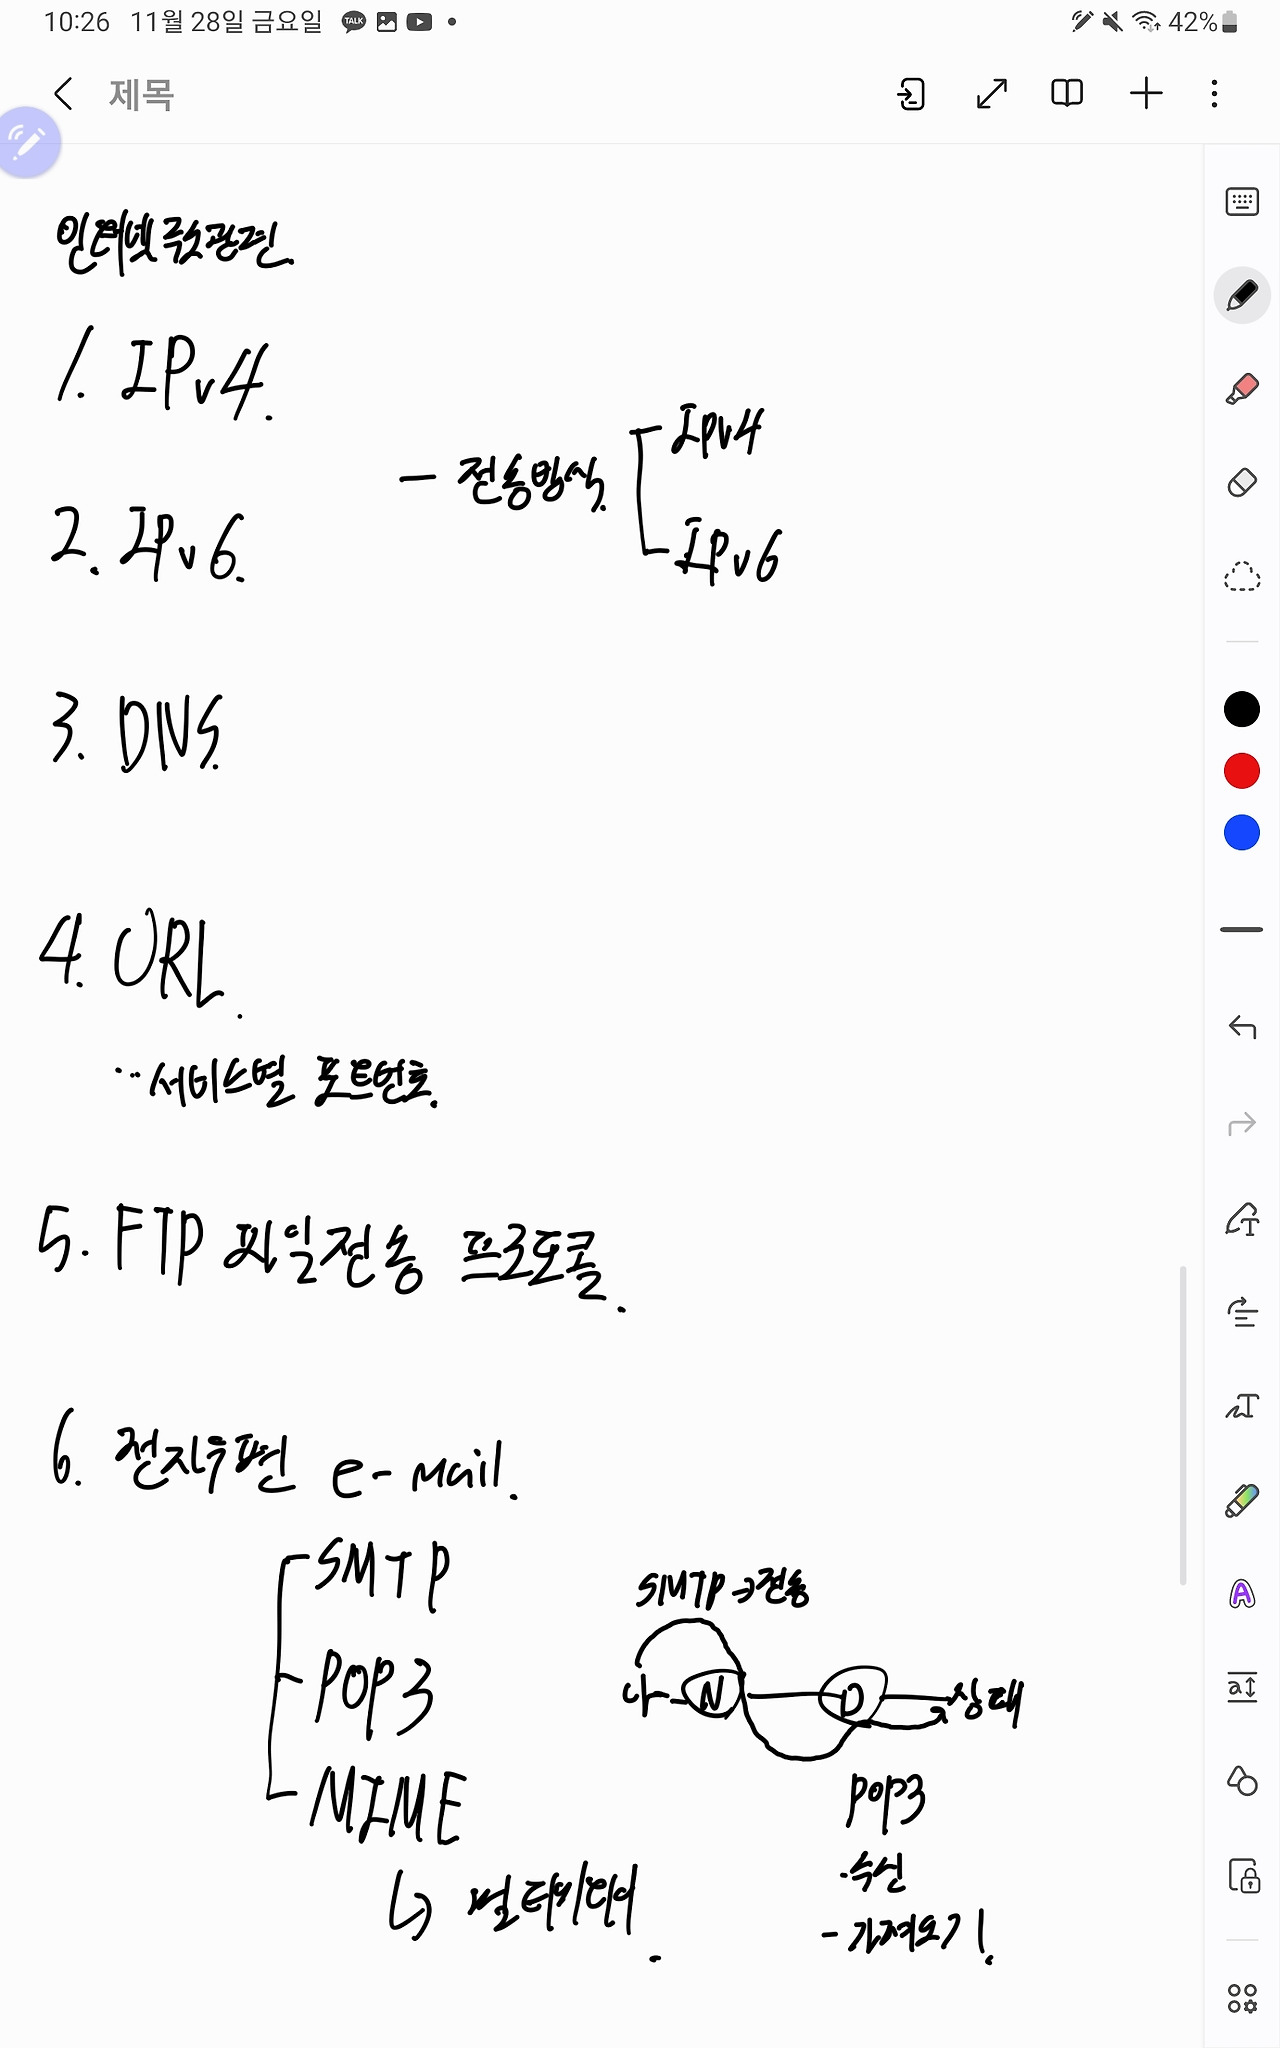 10:26 11월 28일 금요일 TALK 42%
제목
인터넷 주소관련
1. IPv4.
- 전송방식.
IPv4
IPv6
2. IPv6.
3. DNS.
4. URL.
··서비스별 포트번호.
5. FTP 파일전송 프로토콜.
6. 전자우편 e-mail.
SMTP
POP3
MIME
↳ 멀티미디어.
SMTP → 전송
나 N D 상대
POP3
·수신
- 가져오기!